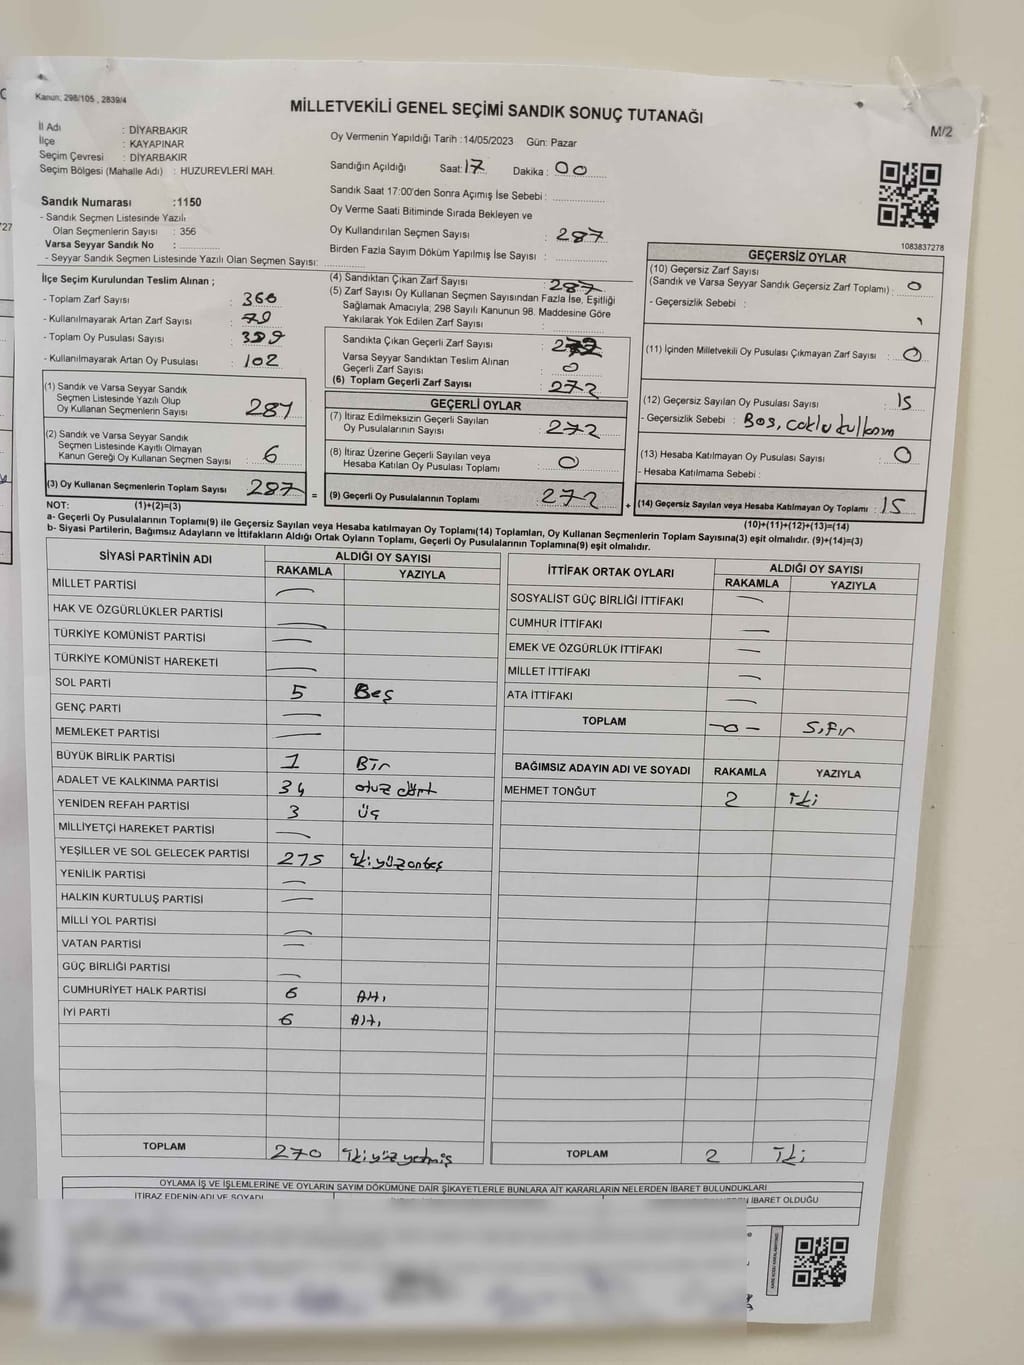 Kanun; 298/105 , 2839/4
MİLLETVEKİLİ GENEL SEÇİMİ SANDIK SONUÇ TUTANAĞI
M/2
İl Adı : DİYARBAKIR
İlçe : KAYAPINAR
Seçim Çevresi : DİYARBAKIR
Seçim Bölgesi (Mahalle Adı) : HUZUREVLERİ MAH.
Sandık Numarası :1150
- Sandık Seçmen Listesinde Yazılı
Olan Seçmenlerin Sayısı : 356
Varsa Seyyar Sandık No :
- Seyyar Sandık Seçmen Listesinde Yazılı Olan Seçmen Sayısı:
Oy Vermenin Yapıldığı Tarih :14/05/2023 Gün: Pazar
Sandığın Açıldığı Saat: 17 Dakika : 00
Sandık Saat 17:00'den Sonra Açımış İse Sebebi :
Oy Verme Saati Bitiminde Sırada Bekleyen ve
Oy Kullandırılan Seçmen Sayısı : 287
Birden Fazla Sayım Döküm Yapılmış İse Sayısı :
1083837278
İlçe Seçim Kurulundan Teslim Alınan ;
- Toplam Zarf Sayısı : 360
- Kullanılmayarak Artan Zarf Sayısı :
- Toplam Oy Pusulası Sayısı :
- Kullanılmayarak Artan Oy Pusulası : 102
(1) Sandık ve Varsa Seyyar Sandık
Seçmen Listesinde Yazılı Olup
Oy Kullanan Seçmenlerin Sayısı : 281
(2) Sandık ve Varsa Seyyar Sandık
Seçmen Listesinde Kayıtlı Olmayan
Kanun Gereği Oy Kullanan Seçmen Sayısı : 6
(3) Oy Kullanan Seçmenlerin Toplam Sayısı : 287
(4) Sandıktan Çıkan Zarf Sayısı : 287
(5) Zarf Sayısı Oy Kullanan Seçmen Sayısından Fazla İse, Eşitliği
Sağlamak Amacıyla; 298 Sayılı Kanunun 98. Maddesine Göre
Yakılarak Yok Edilen Zarf Sayısı :
Sandıkta Çıkan Geçerli Zarf Sayısı :
Varsa Seyyar Sandıktan Teslim Alınan
Geçerli Zarf Sayısı : 0
(6) Toplam Geçerli Zarf Sayısı : 272
GEÇERLİ OYLAR
(7) İtiraz Edilmeksizin Geçerli Sayılan
Oy Pusulalarının Sayısı : 272
(8) İtiraz Üzerine Geçerli Sayılan veya
Hesaba Katılan Oy Pusulası Toplamı : 0
= (9) Geçerli Oy Pusulalarının Toplamı : 272
GEÇERSİZ OYLAR
(10) Geçersiz Zarf Sayısı
(Sandık ve Varsa Seyyar Sandık Geçersiz Zarf Toplamı) : 0
- Geçersizlik Sebebi :
(11) İçinden Milletvekili Oy Pusulası Çıkmayan Zarf Sayısı : 0
(12) Geçersiz Sayılan Oy Pusulası Sayısı : 15
- Geçersizlik Sebebi : Boş,
(13) Hesaba Katılmayan Oy Pusulası Sayısı : 0
- Hesaba Katılmama Sebebi :
+ (14) Geçersiz Sayılan veya Hesaba Katılmayan Oy Toplamı : 15
NOT: (1)+(2)=(3) (10)+(11)+(12)+(13)=(14)
a- Geçerli Oy Pusulalarının Toplamı(9) ile Geçersiz Sayılan veya Hesaba katılmayan Oy Toplamı(14) Toplamları, Oy Kullanan Seçmenlerin Toplam Sayısına(3) eşit olmalıdır. (9)+(14)=(3)
b- Siyasi Partilerin, Bağımsız Adayların ve İttifakların Aldığı Ortak Oyların Toplamı, Geçerli Oy Pusulalarının Toplamına(9) eşit olmalıdır.
SİYASİ PARTİNİN ADI ALDIĞI OY SAYISI
RAKAMLA YAZIYLA
MİLLET PARTİSİ —
HAK VE ÖZGÜRLÜKLER PARTİSİ —
TÜRKİYE KOMÜNİST PARTİSİ —
TÜRKİYE KOMÜNİST HAREKETİ —
SOL PARTİ 5 Beş
GENÇ PARTİ —
MEMLEKET PARTİSİ —
BÜYÜK BİRLİK PARTİSİ 1 Bir
ADALET VE KALKINMA PARTİSİ 34 otuz dört
YENİDEN REFAH PARTİSİ 3 üç
MİLLİYETÇİ HAREKET PARTİSİ —
YEŞİLLER VE SOL GELECEK PARTİSİ 215 ikiyüzonbeş
YENİLİK PARTİSİ —
HALKIN KURTULUŞ PARTİSİ —
MİLLİ YOL PARTİSİ —
VATAN PARTİSİ —
GÜÇ BİRLİĞİ PARTİSİ —
CUMHURİYET HALK PARTİSİ 6 Altı
İYİ PARTİ 6 Altı
TOPLAM 270 ikiyüzyetmiş
İTTİFAK ORTAK OYLARI ALDIĞI OY SAYISI
RAKAMLA YAZIYLA
SOSYALİST GÜÇ BİRLİĞİ İTTİFAKI —
CUMHUR İTTİFAKI —
EMEK VE ÖZGÜRLÜK İTTİFAKI —
MİLLET İTTİFAKI —
ATA İTTİFAKI —
TOPLAM -0- Sıfır
BAĞIMSIZ ADAYIN ADI VE SOYADI RAKAMLA YAZIYLA
MEHMET TONĞUT 2 iki
TOPLAM 2 iki
OYLAMA İŞ VE İŞLEMLERİNE VE OYLARIN SAYIM DÖKÜMÜNE DAİR ŞİKAYETLERLE BUNLARA AİT KARARLARIN NELERDEN İBARET BULUNDUKLARI
İTİRAZ EDENİN ADI VE SOYADI İBARET OLDUĞU